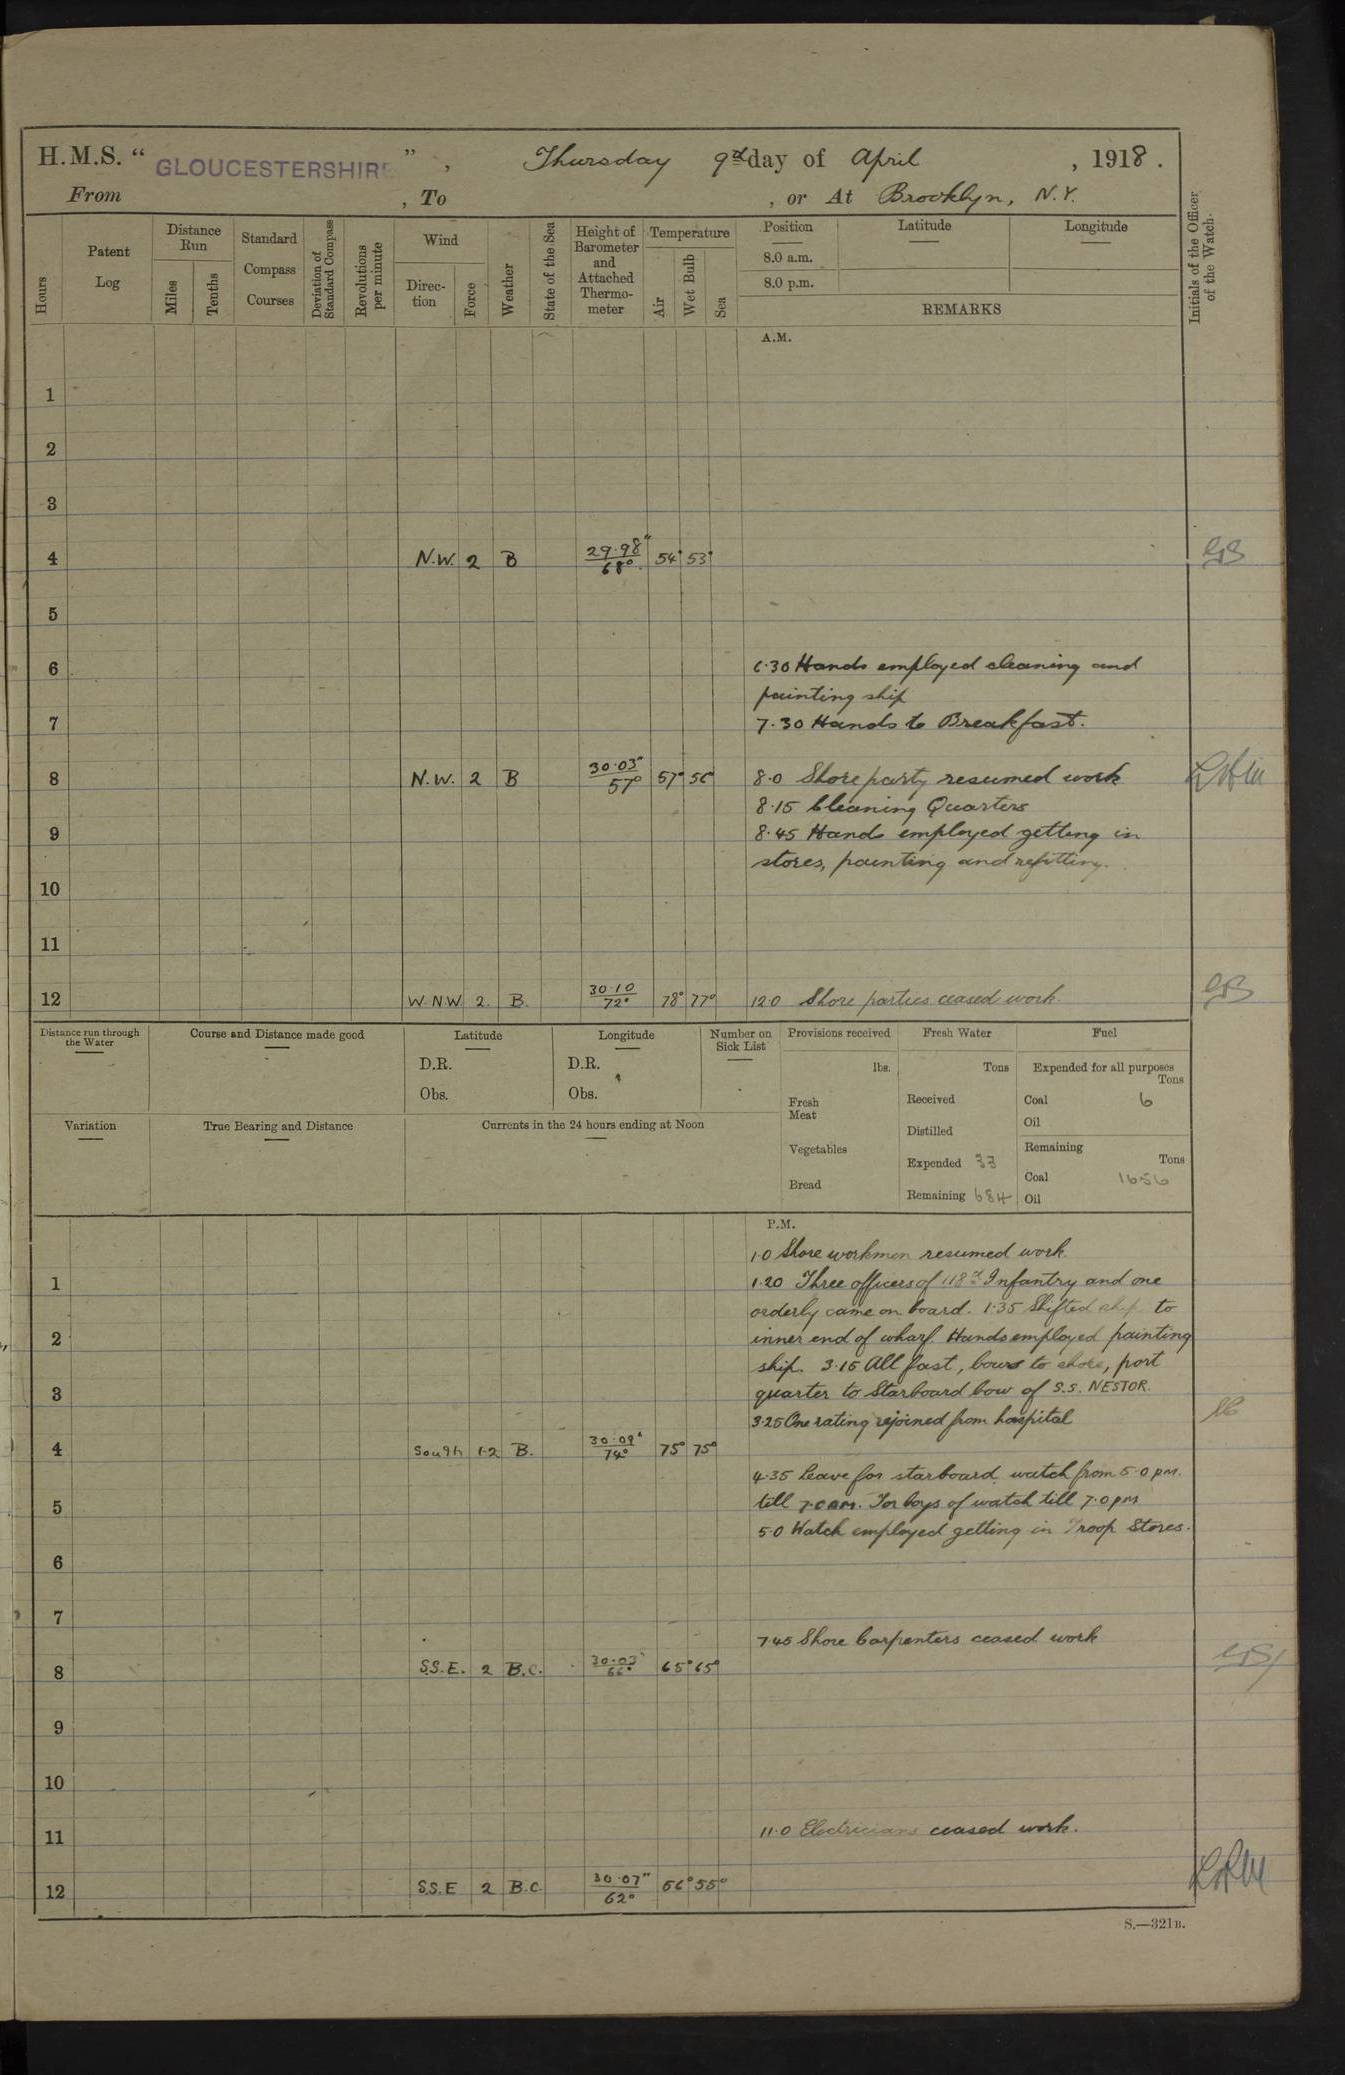 H.M.S. "GLOUCESTERSHIRE", Thursday 9th day of April, 1918.
From , To , or At Brooklyn, N.Y.
Hours
Patent Log
Distance Run
Miles
Tenths
Standard Compass Courses
Deviation of Standard Compass
Revolutions per minute
Wind
Direction
Force
Weather
State of the Sea
Height of Barometer and Attached Thermometer
Temperature
Air
Wet Bulb
Sea
Position
8.0 a.m.
8.0 p.m.
Latitude
Longitude
REMARKS
Initials of the Officer of the Watch.
A.M.
1
2
3
4 N.W. 2 B 29.98" 68° 54° 53°
5
6 6.30 Hands employed cleaning and
painting ship
7 7.30 Hands to Breakfast.
8 N.W. 2 B 30.03" 57° 57° 56° 8.0 Shore party resumed work
8.15 Cleaning Quarters
9 8.45 Hands employed getting in
stores, painting and refitting.
10
11
12 W.N.W. 2. B. 30.10 72° 78° 77° 12.0 Shore parties ceased work.
Distance run through the Water
Course and Distance made good
Latitude
D.R.
Obs.
Longitude
D.R.
Obs.
Number on Sick List
Provisions received
lbs.
Fresh Meat
Vegetables
Bread
Fresh Water
Tons
Received
Distilled
Expended 33
Remaining 684
Fuel
Expended for all purposes
Tons
Coal 6
Oil
Remaining
Tons
Coal 1656
Oil
Variation
True Bearing and Distance
Currents in the 24 hours ending at Noon
P.M.
1.0 Shore workmen resumed work.
1 1.20 Three officers of 118th Infantry and one
orderly came on board. 1.35 Shifted ship to
2 inner end of wharf. Hands employed painting
ship. 3.15 All fast, bows to shore, port
3 quarter to Starboard bow of S.S. NESTOR.
3.25 One rating rejoined from hospital
4 South 1.2 B. 30.09" 74° 75° 75°
4.35 Leave for starboard watch from 5.0 pm.
5 till 7.0 AM. For boys of watch till 7.0 pm
5.0 Watch employed getting in Troop Stores.
6
7
7.45 Shore Carpenters ceased work
8 S.S.E. 2 B.C. 30.03" 66° 65° 65°
9
10
11 11.0 Electricians ceased work.
12 S.S.E 2 B.C. 30.07" 62° 56° 55°
S.—321B.